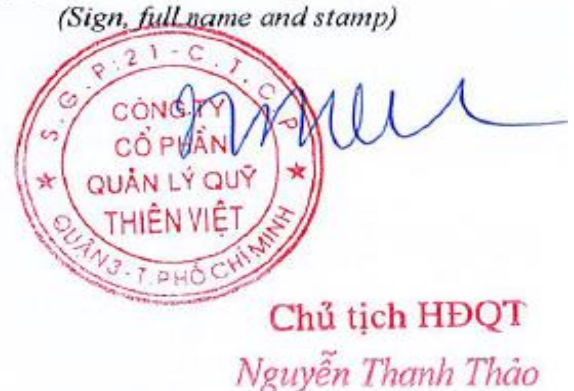 (Sign, full name and stamp)
S.G.P:21-C.T.C.P
CÔNG TY
CỔ PHẦN
QUẢN LÝ QUỸ
THIÊN VIỆT
QUẬN 3 - T.PHỐ CHÍ MINH
Chủ tịch HĐQT
Nguyễn Thanh Thảo